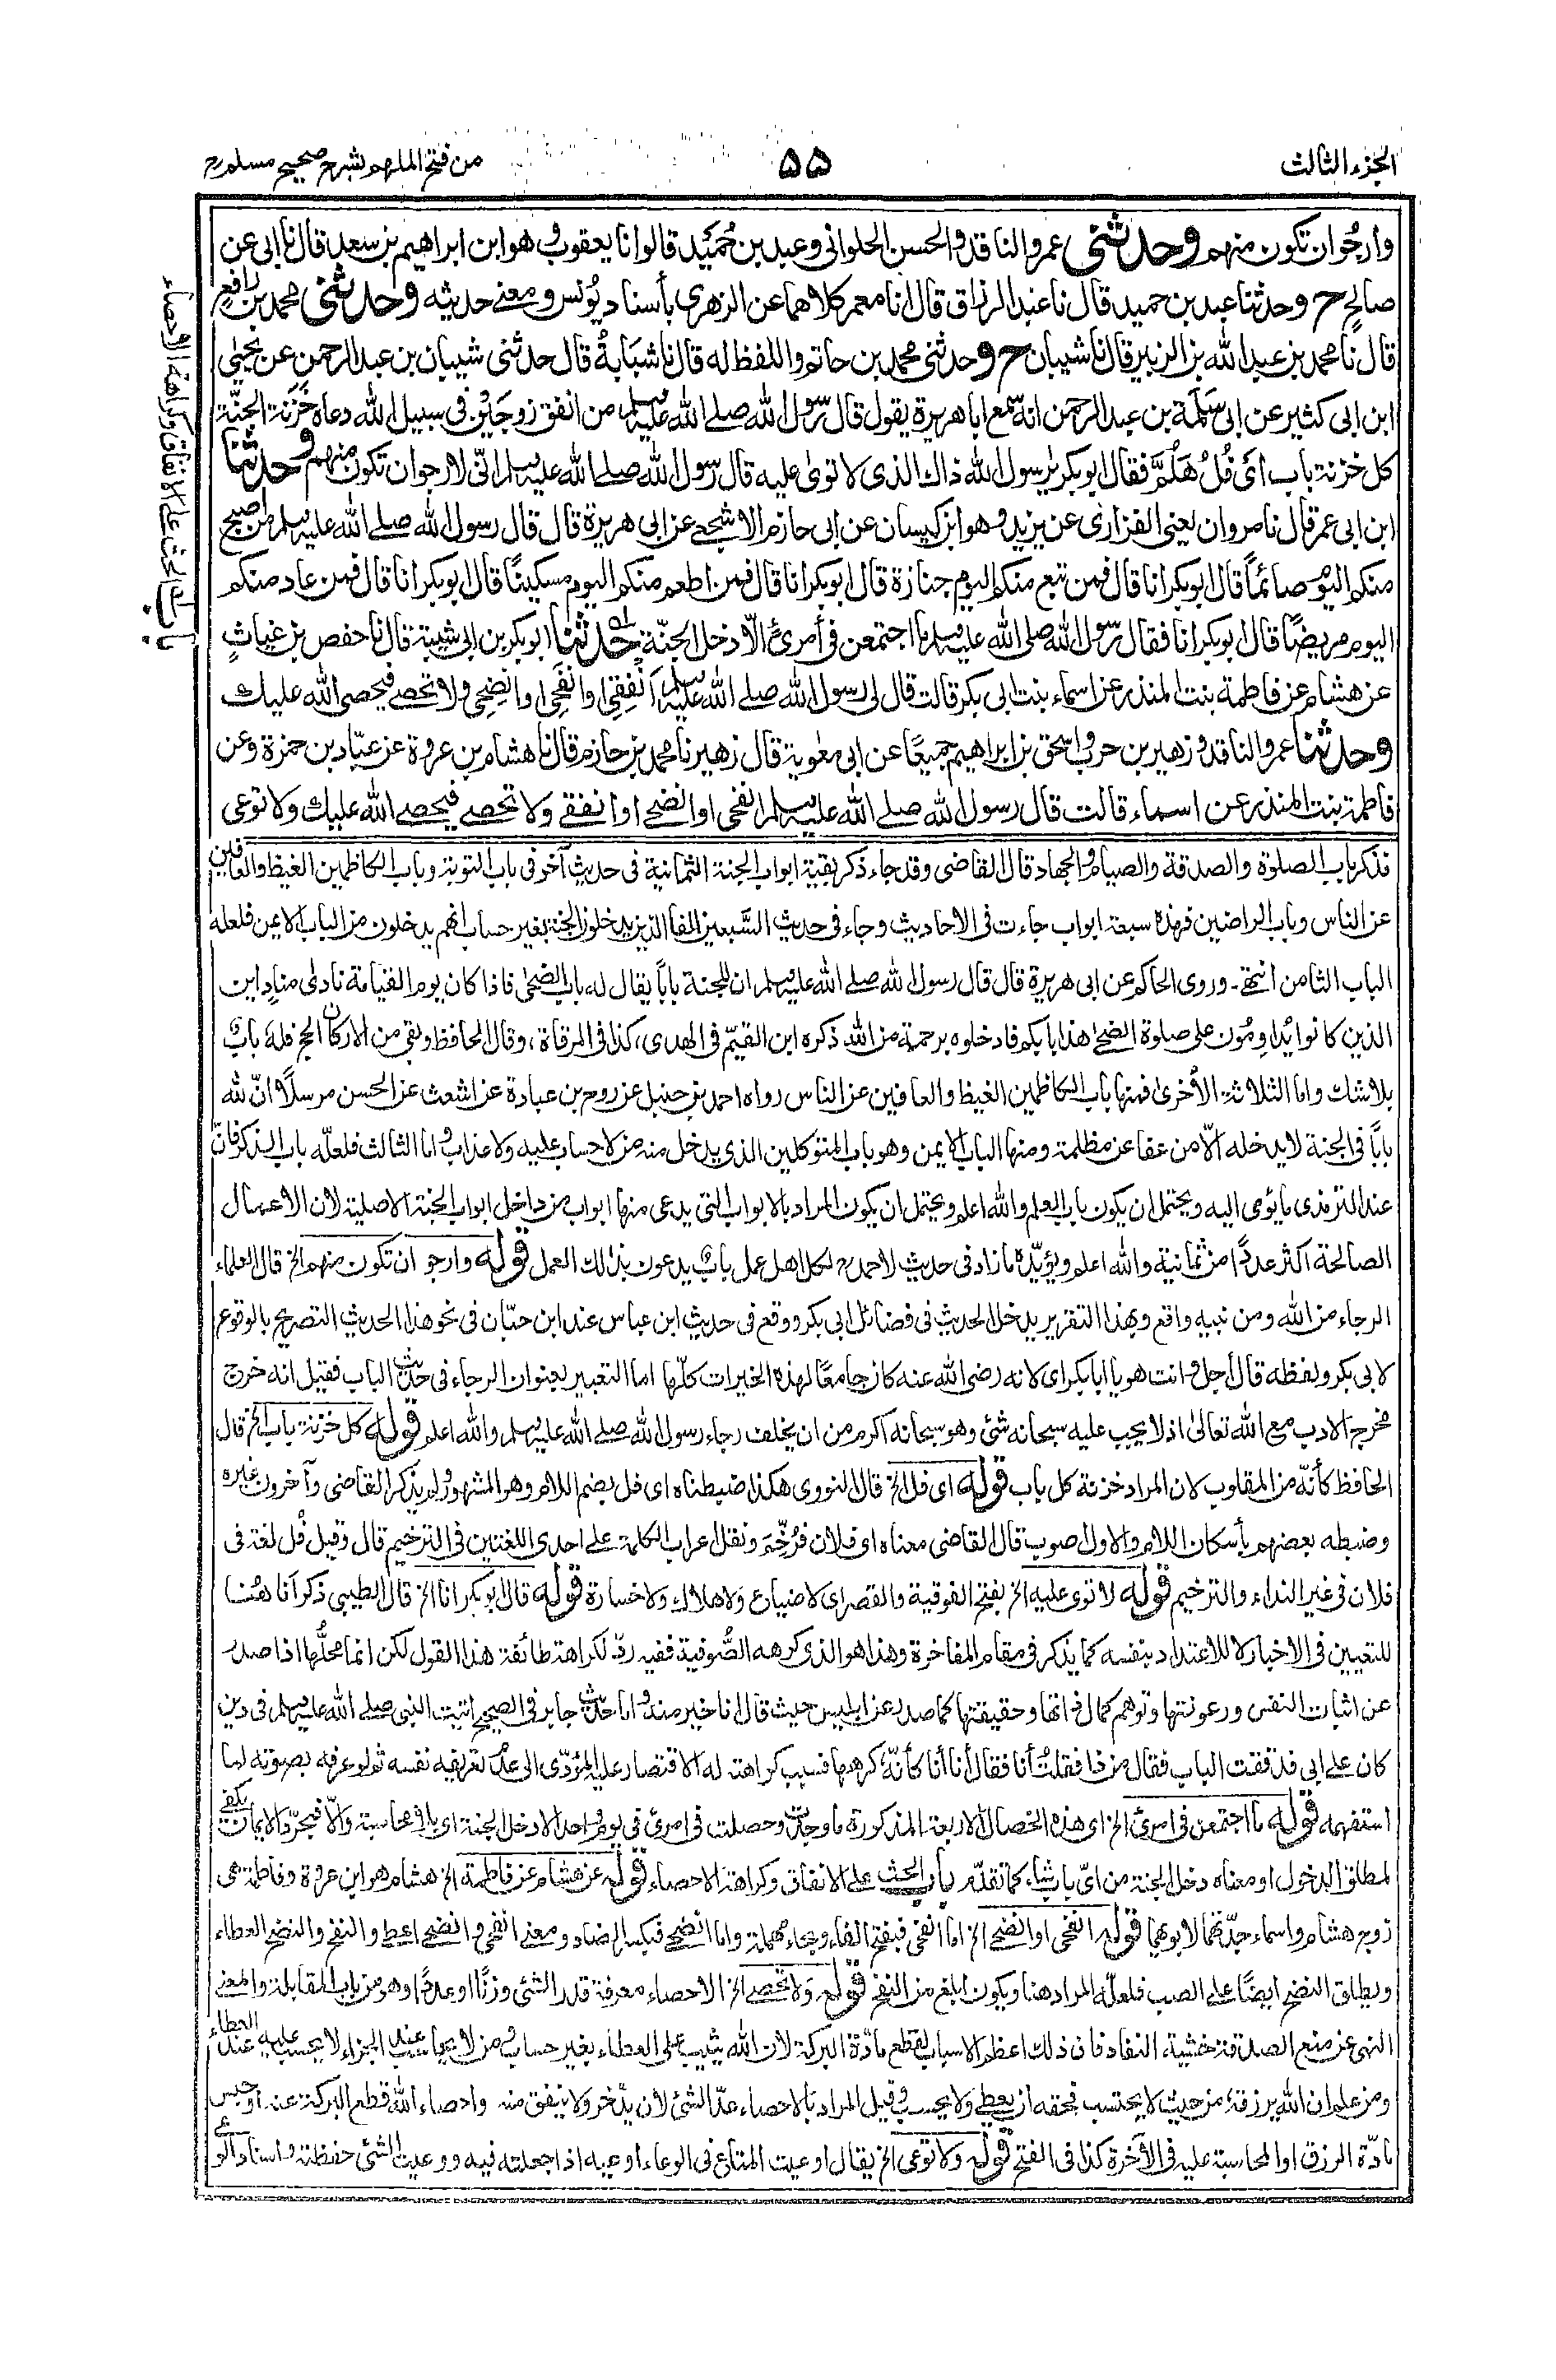 الجزء الثالث
۵۵
من فتح الملهم بشرح صحيح مسلم رح
وارجوان تكون منهم وحدثنى عمرو الناقد والحسن الحلوانى وعبد بن حُمَيد قالوا نا يعقوب وهو ابن ابراهيم بن سعد قال نا ابى عن
صالح ح وحدثنا عبد بن حميد قال نا عبد الرزاق قال انا معمر كلاهما عن الزهرى بأسناد يُونس ومعنے حديثه وحدثنى محمد بن رافع
قال نا محمد بن عبد الله بن الزبير قال نا شيبان ح وحدثنى محمد بن حاتم واللفظ له قال نا شَبَابةُ قال حدثنى شيبان بن عبد الرحمن عن يحيٰى
ابن ابى كثير عن ابى سَلَمة بن عبد الرحمن انه سمع ابا هريرة يقول قال رسول الله صلے الله عليه وسلم من انفق زوجَيْنِ فى سبيل الله دعاه خَزَنة الجنّة
كل خزنة باب اَىْ فُلُ هَلُمَّ فقال ابو بكر يا رسول الله ذاك الذى لا توىٰ عليه قال رسول الله صلے الله عليه وسلم انّى لارجو ان تكون منهم وحدثنا
ابن ابى عمر قال نا مروان يعنى الفزارى عن يزيد وهو ابن كيسان عن ابى حازم الاشجعے عن ابى هريرة قال قال رسول الله صلے الله عليه وسلم من اصبح
منكم اليوم صائمًا قال ابو بكر انا قال فمن تبع منكم اليوم جنازة قال ابو بكر انا قال فمن اطعم منكم اليوم مسكينًا قال ابو بكر انا قال فمن عاد منكم
اليوم مريضًا قال ابو بكر انا فقال رسول الله صلى الله عليه وسلم ما اجتمعن فى أمرئ الّا دخل الجنّة حدثنا ابو بكر بن ابى شيبة قال نا حفص بن غياثٍ
عن هشام عن فاطمة بنت المنذر عن اسماء بنت ابى بكر قالت قال لى رسول الله صلے الله عليه وسلم اَنْفِقِى او انْفَحِى او انْضِحِى ولا تحصے فيحصى الله عليك
وحدثنا عمرو الناقد وزهير بن حرب واسحق بن ابراهيم جميعًا عن ابى معٰوية قال زهير نا محمد بن حازم قال نا هشام بن عروة عن عبّاد بن حمزة وعن
فاطمة بنت المنذر عن اسماء قالت قال رسول الله صلے الله عليه وسلم انفحى او انضحے او انفقے ولا تحصے فيحصے الله عليك ولا توعى
باب الحث على الانفاق وكراهة الاحصاء
فذكر باب الصلٰوة والصدقة والصيام والجهاد قال القاضى وقد جاء ذكر بقية ابواب الجنة الثمانية فى حديث آخر فى باب التوبة وباب الكاظمين الغيظ والعافين
عن الناس وباب الراضين فهذه سبعة ابواب جاءت فى الاحاديث وجاء فى حديث السّبعين الفا الذين يدخلون الجنة بغير حساب انهم يدخلون من الباب الايمن فلعله
الباب الثامن انتهٰے۔ وروى الحاكم عن ابى هريرة قال قال رسول الله صلے الله عليه وسلم ان للجنة بابًا يقال له باب الضحىٰ فاذا كان يوم القيامة نادىٰ منادٍ اين
الذين كانوا يُداوِمُون على صلوٰة الضحىٰ هذا بابكم فادخلوه برحمة من الله ذكره ابن القيّم فى الهدى، كذا فى المرقاة، وقال الحافظ وبقى من الاركان الحج فله بابٌ
بلا شك واما الثلاثة الأخرىٰ فمنها باب الكاظمين الغيظ والعافين عن الناس رواه احمد بن حنبل عن روح بن عبادة عن اشعث عن الحسن مرسلًا انّ لله
بابًا فى الجنة لا يدخله الّا من عفا عن مظلمة ومنها الباب الايمن وهو باب المتوكلين الذى يدخل منه من لا حساب عليه ولا عذاب واما الثالث فلعلّه باب الذكر فانّ
عند الترمذى ما يؤمى اليه ويحتمل ان يكون باب العلم والله اعلم ويحتمل ان يكون المراد بالابواب التى يدعى منها ابواب من داخل ابواب الجنة الاصلية لان الاعمال
الصالحة اكثر عددًا من ثمانية والله اعلم ويؤيّده ما زاد فى حديث لاحمد رح لكل اهل عمل بابٌ يدعون بذٰلك العمل قوله وارجو ان تكون منهم الخ قال العلماء
الرجاء من الله ومن نبيه واقع وبهذا التقرير يدخل الحديث فى فضائل ابى بكر ووقع فى حديث ابن عباس عند ابن حبّان فى نحو هذا الحديث التصريح بالوقوع
لابى بكر ولفظه قال أجل وانت هو يا ابا بكر اى لانه رضى الله عنه كان جامعًا لهذه الخيرات كلّها اما التعبير بعنوان الرجاء فى حديث الباب فقيل انه خرج
مخرج الادب مع الله تعالىٰ اذ لا يجب عليه سبحانه شئ وهو سبحانه اكرم من ان يخلف رجاء رسول الله صلے الله عليه وسلم والله اعلم قوله كل خزنة باب الخ قال
الحافظ كأنّه من المقلوب لان المراد خزنة كل باب قوله اى فل الخ قال النووى هكذا ضبطناه اى فل بضم اللام وهو المشهور ولم يذكر القاضى وآخرون غيره
وضبطه بعضهم بأسكان اللام والاول صوب قال القاضى معناه اى فلان فرُخِّمَ ونقل اعراب الكلمة على احدى اللغتين فى الترخيم قال وقيل فُل لغة فى
فلان فى غير النداء والترخيم قوله لا توى عليه الخ بفتح الفوقية والقصر اى لا ضياع ولا هلاك ولا خسارة قوله قال ابو بكر انا الخ قال الطيبى ذكر اَنا هُنا
للتعيين فى الاخبار لا للاعتداد بنفسه كما يذكر فى مقام المفاخرة وهذا هو الذى كرهه الصُّوفية ففيه ردّ لكراهة طائفة هذا القول لكن انما محلُّها اذا صدر
عن اثبات النفس ورعونتها وتوهم كمال ذاتها وحقيقتها كما صدر عن ابليس حيث قال انا خير منه واما حديث جابر فى الصحيح اتيت النبى صلے الله عليه وسلم فى دين
كان على ابى فدققت الباب فقال من ذا فقلتُ أنا فقال أنا أنا كأنّه كرهها فسبب كراهته له الاقتصار عليه المؤدّى الى عدم تعريفه نفسه ثم لو عرفه بصوته لما
استفهمه قوله ما اجتمعن فى امرئ الخ اى هذه الخصال الاربعة المذكورة ما وجدت وحصلت فى امرئ فى يوم واحد الا دخل الجنة اى بلا محاسبة والّا فمجرّد الايمان يكفى
لمطلق الدخول او معناه دخل الجنة من اىّ باب شاء كما تقدّم باب الحث على الانفاق وكراهة الاحصاء قوله عن هشام عن فاطمة الخ هشام هو ابن عروة وفاطمة هى
زوجة هشام واسماء جدّتهما لابويهما قوله انفحى او انضحے الخ اما انفحى فبفتح الفاء وبحاء مهملة واما انضحے فبكسر الضاد ومعنے انفحى وانضحے اعطى والنفح والنضح العطاء
ويطلق النضح ايضًا على الصب فلعلّه المراد هنا ويكون ابلغ من النفح قوله ولا تحصے الخ الاحصاء معرفة قدر الشئ وزنًا او عددًا وهو من باب المقابلة والمعنى
النهى عن منع الصدقة خشية النفاد فان ذلك اعظم الاسباب لقطع مادّة البركة لان الله يثيب على العطاء بغير حساب ومن لا يحاسب عند الجزاء لا يحسب عليه عند العطاء
ومن علم ان الله يرزقه من حيث لا يحتسب فحقه ان يعطے ولا يحسب وقيل المراد بالاحصاء عدّ الشئ لأن يدّخر ولا ينفق منه واحصاء الله قطع البركة عنه او حبس
مادّة الرزق او المحاسبة عليه فى الآخرة كذا فى الفتح قوله ولا توعى الخ يقال اوعيت المتاع فى الوعاء اوعيه اذا جعلته فيه ووعيت الشئ حفظته واسناد الوعى